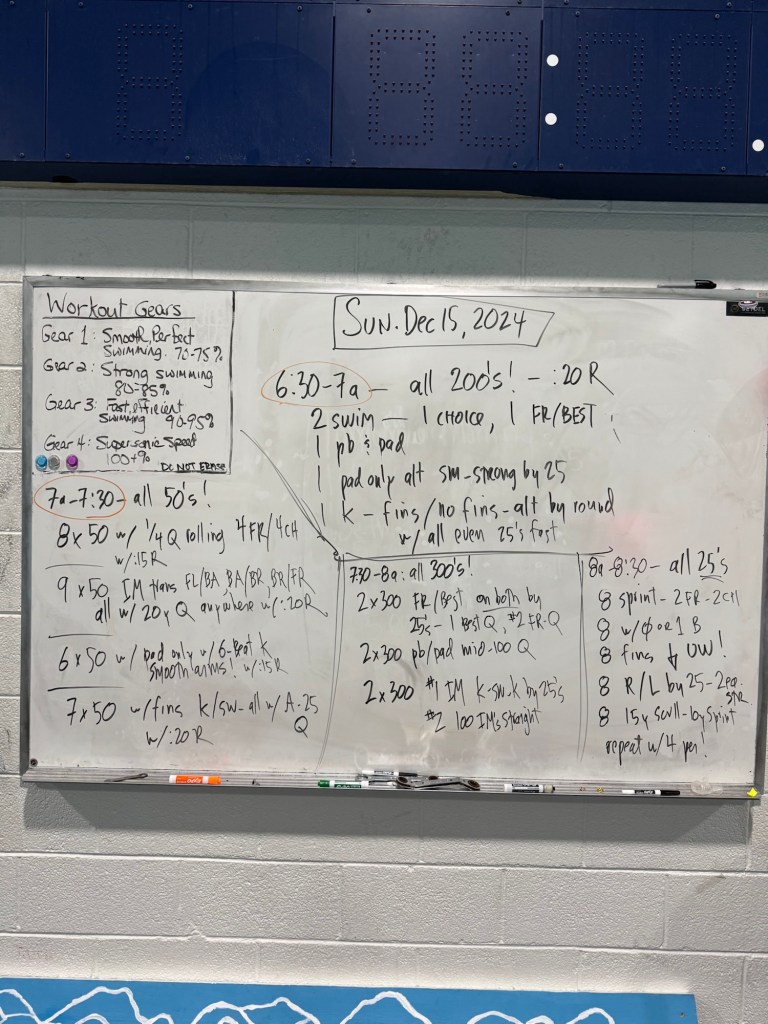 Workout Gears
Gear 1: Smooth, Perfect
Swimming. 70-75%
Gear 2: Strong swimming
80-85%
Gear 3: Fast, efficient
Swimming 90-95%
Gear 4: Supersonic Speed
100+%
DO NOT ERASE
SUN. Dec 15, 2024
6:30-7a — all 200's! - :20 R
2 swim — 1 CHOICE, 1 FR/BEST
1 pb & pad
1 pad only alt sm-strong by 25
1 k - fins/no fins-alt by round
w/ all even 25's fast
7a-7:30 - all 50's!
8x50 w/ 1/4 Q rolling 4FR/4CH
w/:15R
9x50 IM trans FL/BA, BA/BR, BR/FR
all w/ 20y Q anywhere w/:20R
6x50 w/ pad only w/ 6-Beat k
smooth arms! w/:15R
7x50 w/fins k/sw-all w/ A-25
Q
w/:20R
7:30-8a: all 300's!
2x300 FR/Best on both by
25's-1 Best Q, #2 FR-Q
2x300 pb/pad mid-100 Q
2x300 #1 IM k-sw-k by 25's
#2 100 IMs straight
8a-8:30- all 25's
8 sprint-2FR-2CH
8 w/0 or 1 B
8 fins UW!
8 R/L by 25-2ea.
8 15y scull-by sprint
repeat w/ 4 per!